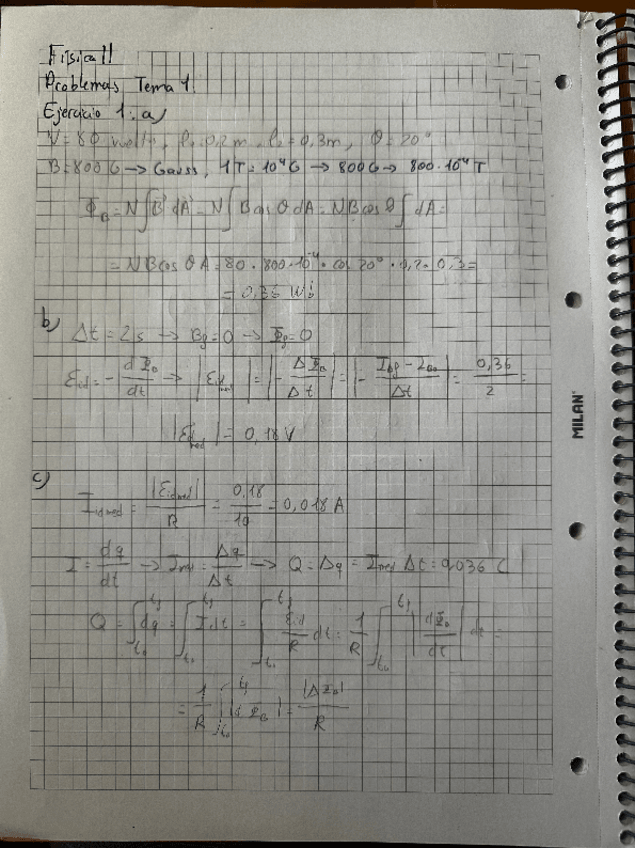 Física II
Problemas Tema 1.
Ejercicio 1: a)
N = 80 l₁ = 0,2m, l₂ = 0,3m, θ = 20°
B = 800 G → Gauss, 1T = 10⁴G → 800G → 800·10⁻⁴ T
Φ_B = N∫B dA = N∫B cos θ dA = NB cos θ ∫dA =
= NB cos θ A = 80 · 800·10⁻⁴ · cos 20° · 0,2 · 0,3 =
= 0,36 Wb
b)
Δt = 2s → B_f = 0 → Φ_f = 0
ε_id = - dΦ_B/dt → |ε_id med| = |- ΔΦ_B/Δt| = |- (Φ_Bf - Φ_B0)/Δt| = 0,36/2 =
|ε_id med| = 0,18 V
c)
I_id med = |ε_id med|/R = 0,18/10 = 0,018 A
I = dq/dt → I_med = Δq/Δt → Q = Δq = I_med Δt = 0,036 C
Q = ∫_t₀^t_f dq = ∫_t₀^t_f I dt = ∫_t₀^t_f ε_id/R dt = 1/R ∫_t₀^t_f |dΦ_B/dt| dt =
= 1/R ∫_t₀^t_f |dΦ_B| = |ΔΦ_B|/R
MILAN